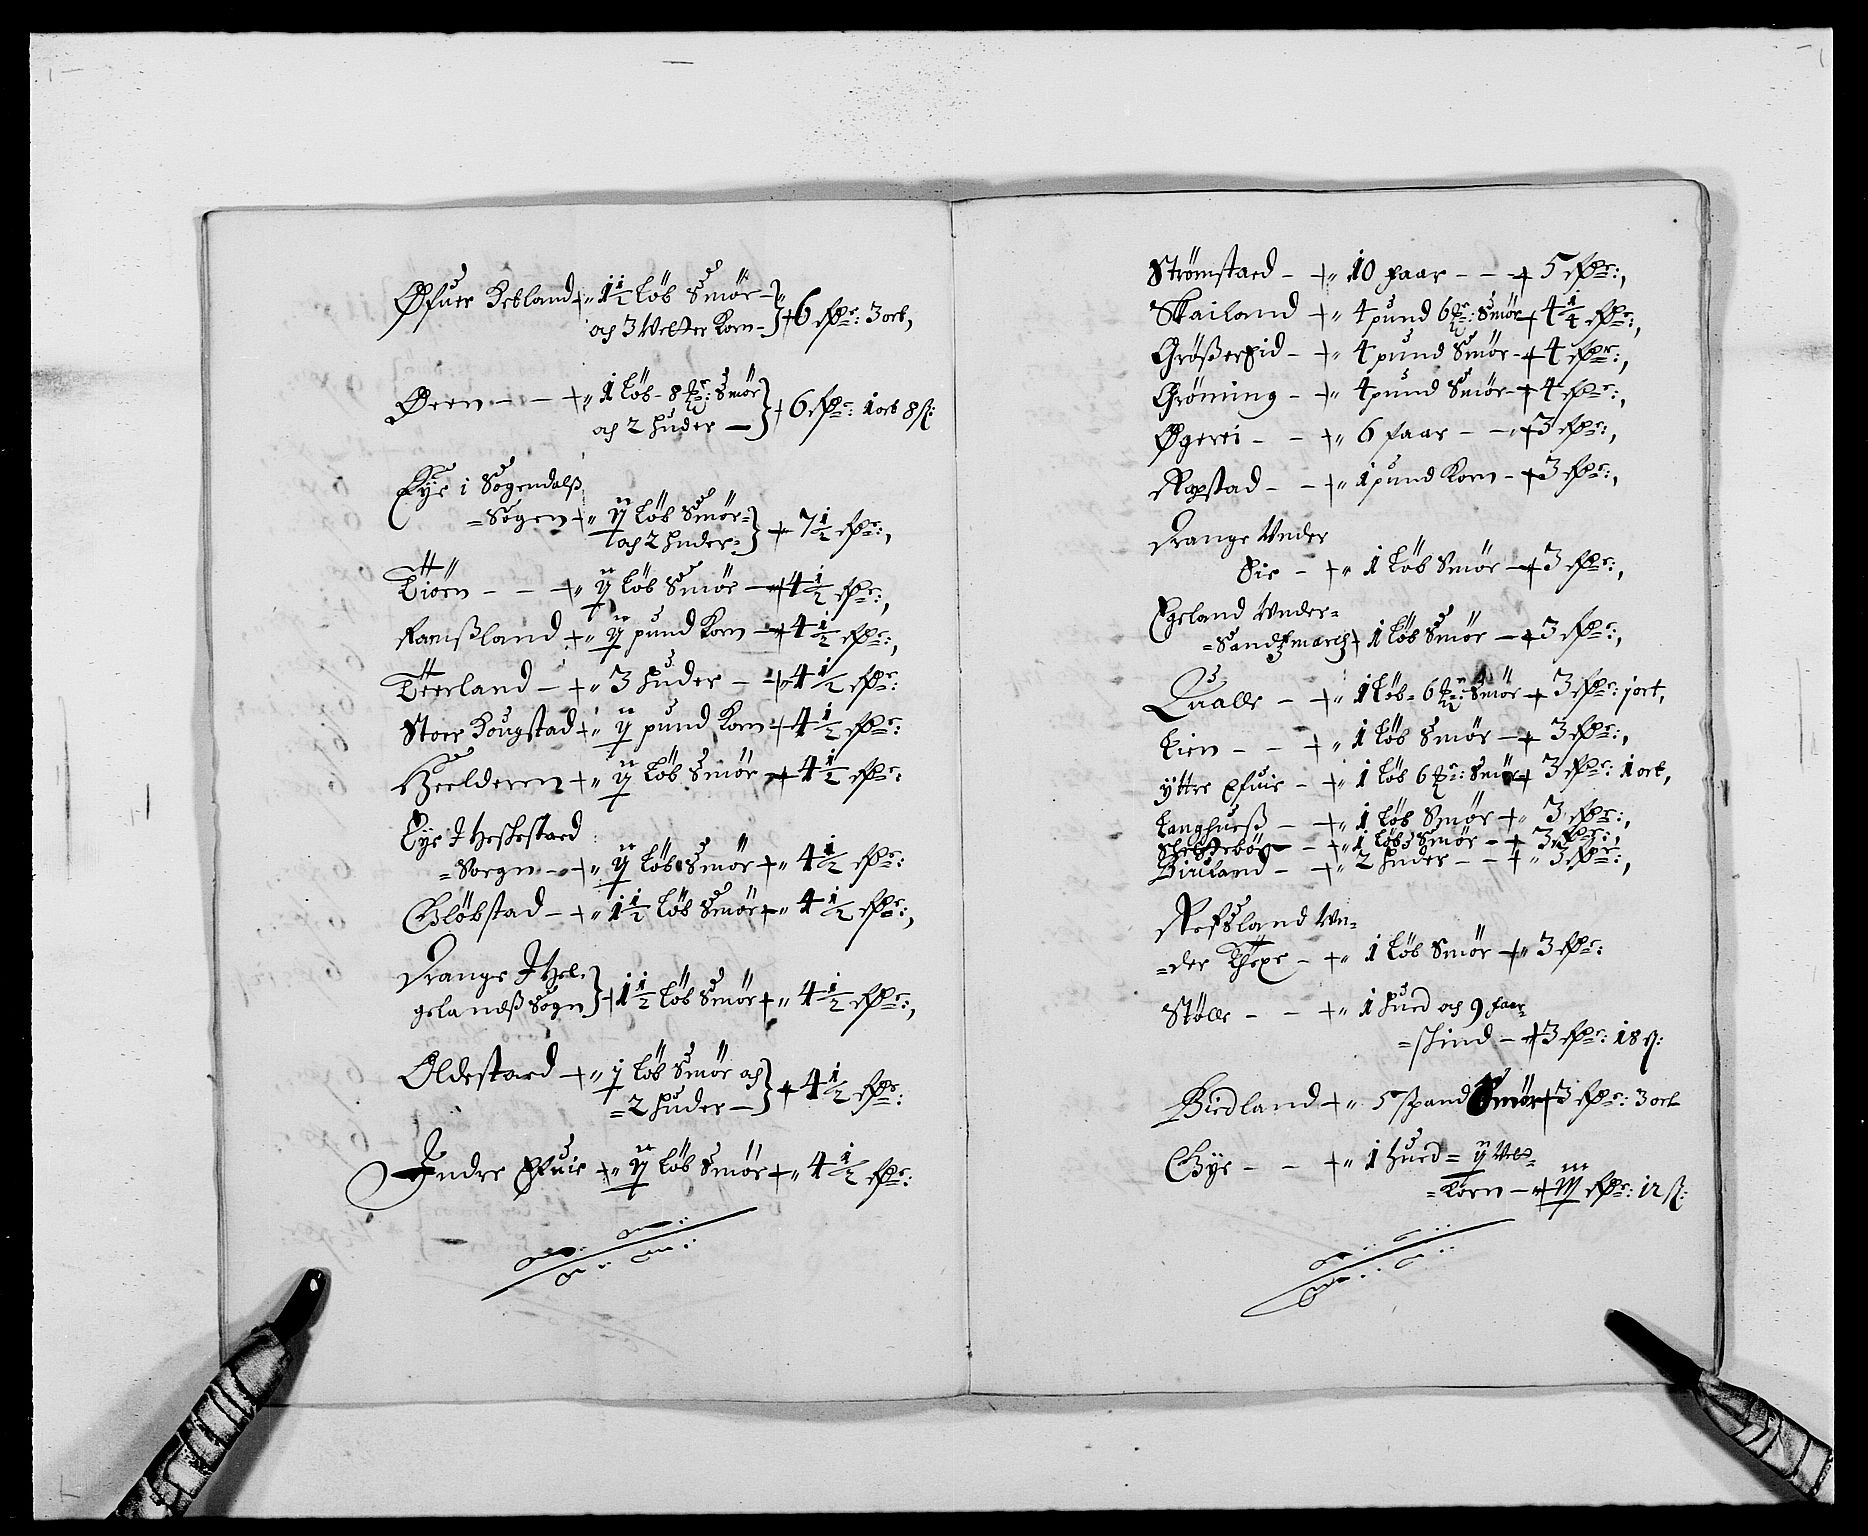 Øfuer Kebland + 1½ Løb Smør
och 3 Vetter Korn + 6 rdr: 3 ort,
Øeen - - + 1 Løb 8 mr: Smør
och 2 Huder + 6 rdr: 1 ort 8 s:
Eye i Sogendalß
=Sogen + ij Løb Smør=
och 2 Huder= + 7½ rdr:,
Tiörn - - + ij Løb Smør + 4½ rdr:,
Ramßland + ij pund Korn + 4½ rdr:,
Töerland - + 3 Huder - + 4½ rdr:
Stoer Hougstad + ij pund Korn + 4½ rdr:
Heelderen + ij Løb Smør + 4½ rdr:
Eye J Heskestaed
=Soegn - + ij Løb Smør + 4½ rdr:
Gløbstad - + 1½ Løb Smør + 4½ rdr:,
Drange J Hel=
gelandß Sogn + 1½ Løb Smør + 4½ rdr:,
Oldestaed + j Løb Smør och
=2 Huder + 4½ rdr:
Indre Efuie + ij Løb Smør + 4½ rdr:
Strømstaed - + 10 Faar - - + 5 rdr:,
Skailand + 4 pund 6 mr: Smør + 4¼ rdr:,
- + 4 pund Smør + 4 rdr:,
Grøning - + 4 pund Smør + 4 rdr:,
Øgerei - - + 6 faar - - + 3 rdr:,
Rapstad - - + 1 pund Korn - + 3 rdr:,
Drange Vnder
Eie - + 1 Løb Smør + 3 rdr:,
Egeland Vnder=
=Sandsmarch + 1 Løb Smør + 3 rdr:,
Qualle - + 1 Løb= 6 mr: Smør + 3 rdr: 1 ort,
Lien - - + 1 Løb Smør + 3 rdr:,
Yttre Efuie - + 1 Løb 6 mr: Smør + 3 rdr: 1 ort,
Langhueß - + 1 Løb Smør + 3 rdr:,
- + 1 Løb Smør - + 3 rdr:,
Birkland - + 2 Huder - - + 3 rdr:,
Refsland Vn=
=der - + 1 Løb Smør + 3 rdr:
Stølle - - + 1 Hued och 9 faar=
=skind - + 3 rdr: 18 s:
Biedland + 5 spand Smør + 3 rdr: 3 ort
Gye - - + 1 Hued= ij Vet=
=Korn - + iij rdr: 12 s: